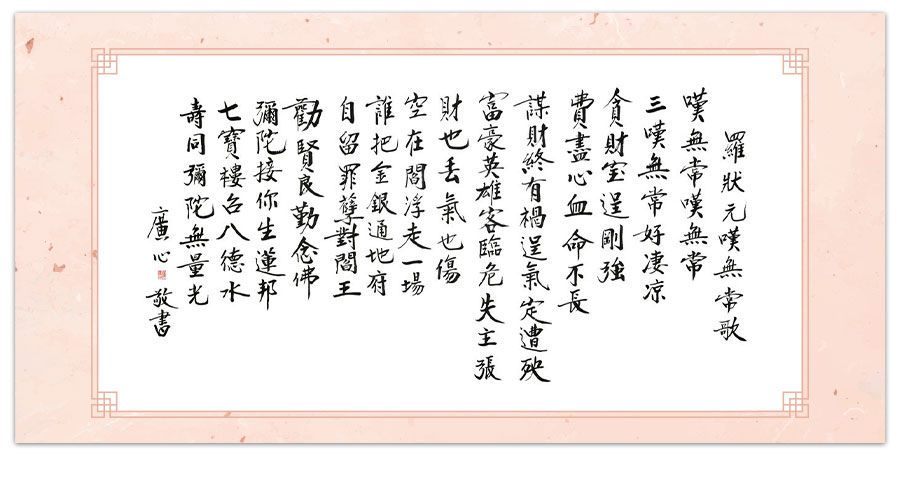 羅狀元嘆無常歌
嘆無常嘆無常
三嘆無常好凄凉
貪財寶逞剛強
費盡心血命不長
謀財終有禍逞氣定遭殃
富豪英雄客臨危失主張
財也丢氣也傷
空在閻浮走一場
誰把金銀通地府
自留罪孽對閻王
勸賢良勤念佛
彌陀接你生蓮邦
七寶樓台八德水
壽同彌陀無量光
廣心敬書